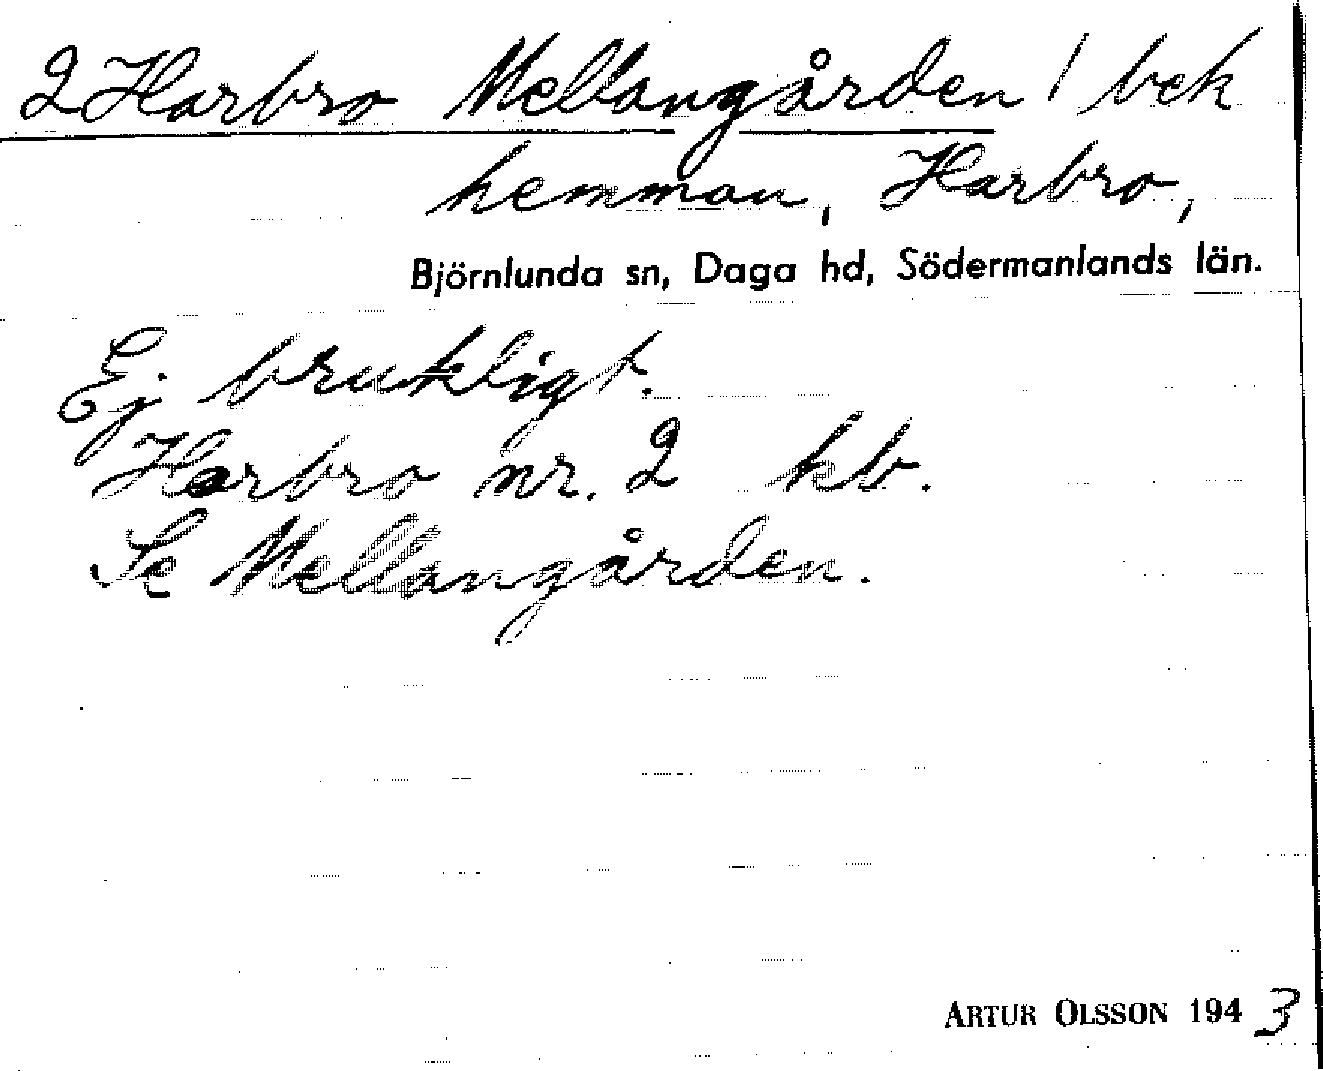 2 Harbro Mellangården / bek
hemman, Harbro,
Björnlunda sn, Daga hd, Södermanlands län.
Ej brukligt.
Harbro nr. 2 kb.
Se Mellangården.
ARTUR OLSSON 1943